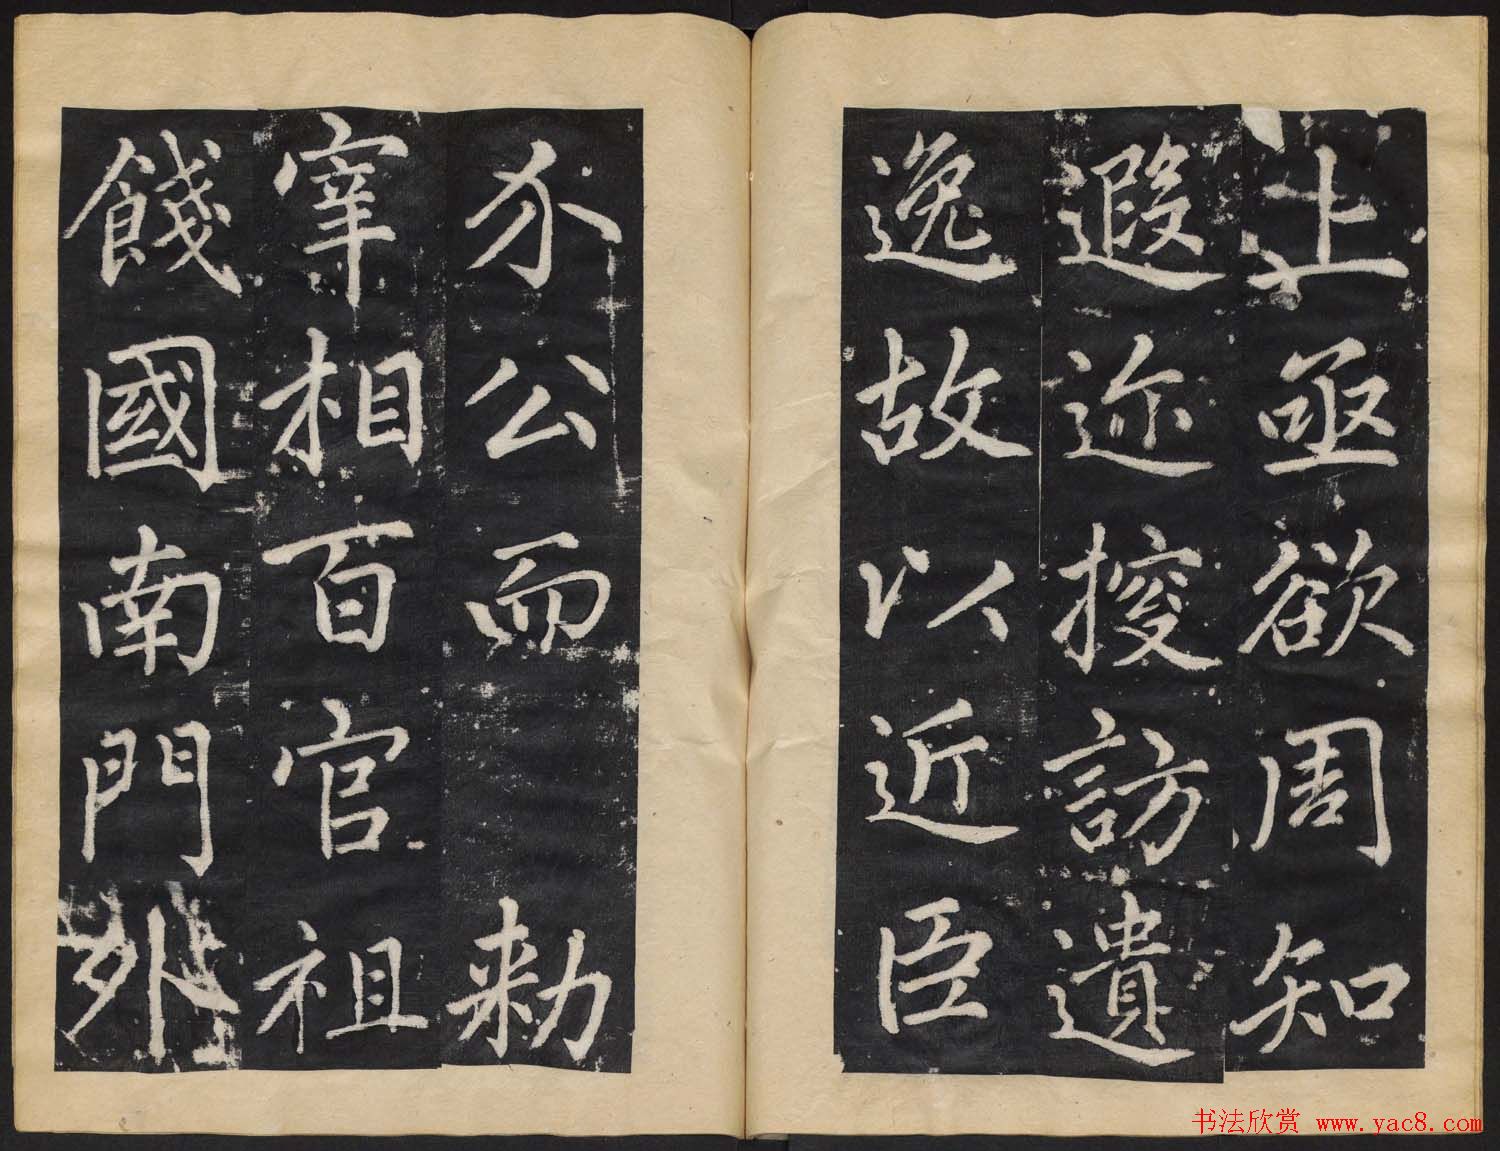 上亟欲周知
遐迩搜訪遺
逸故以近臣
介公而 勅
宰相百官祖
餞國南門外
书法欣赏 www.yac8.com